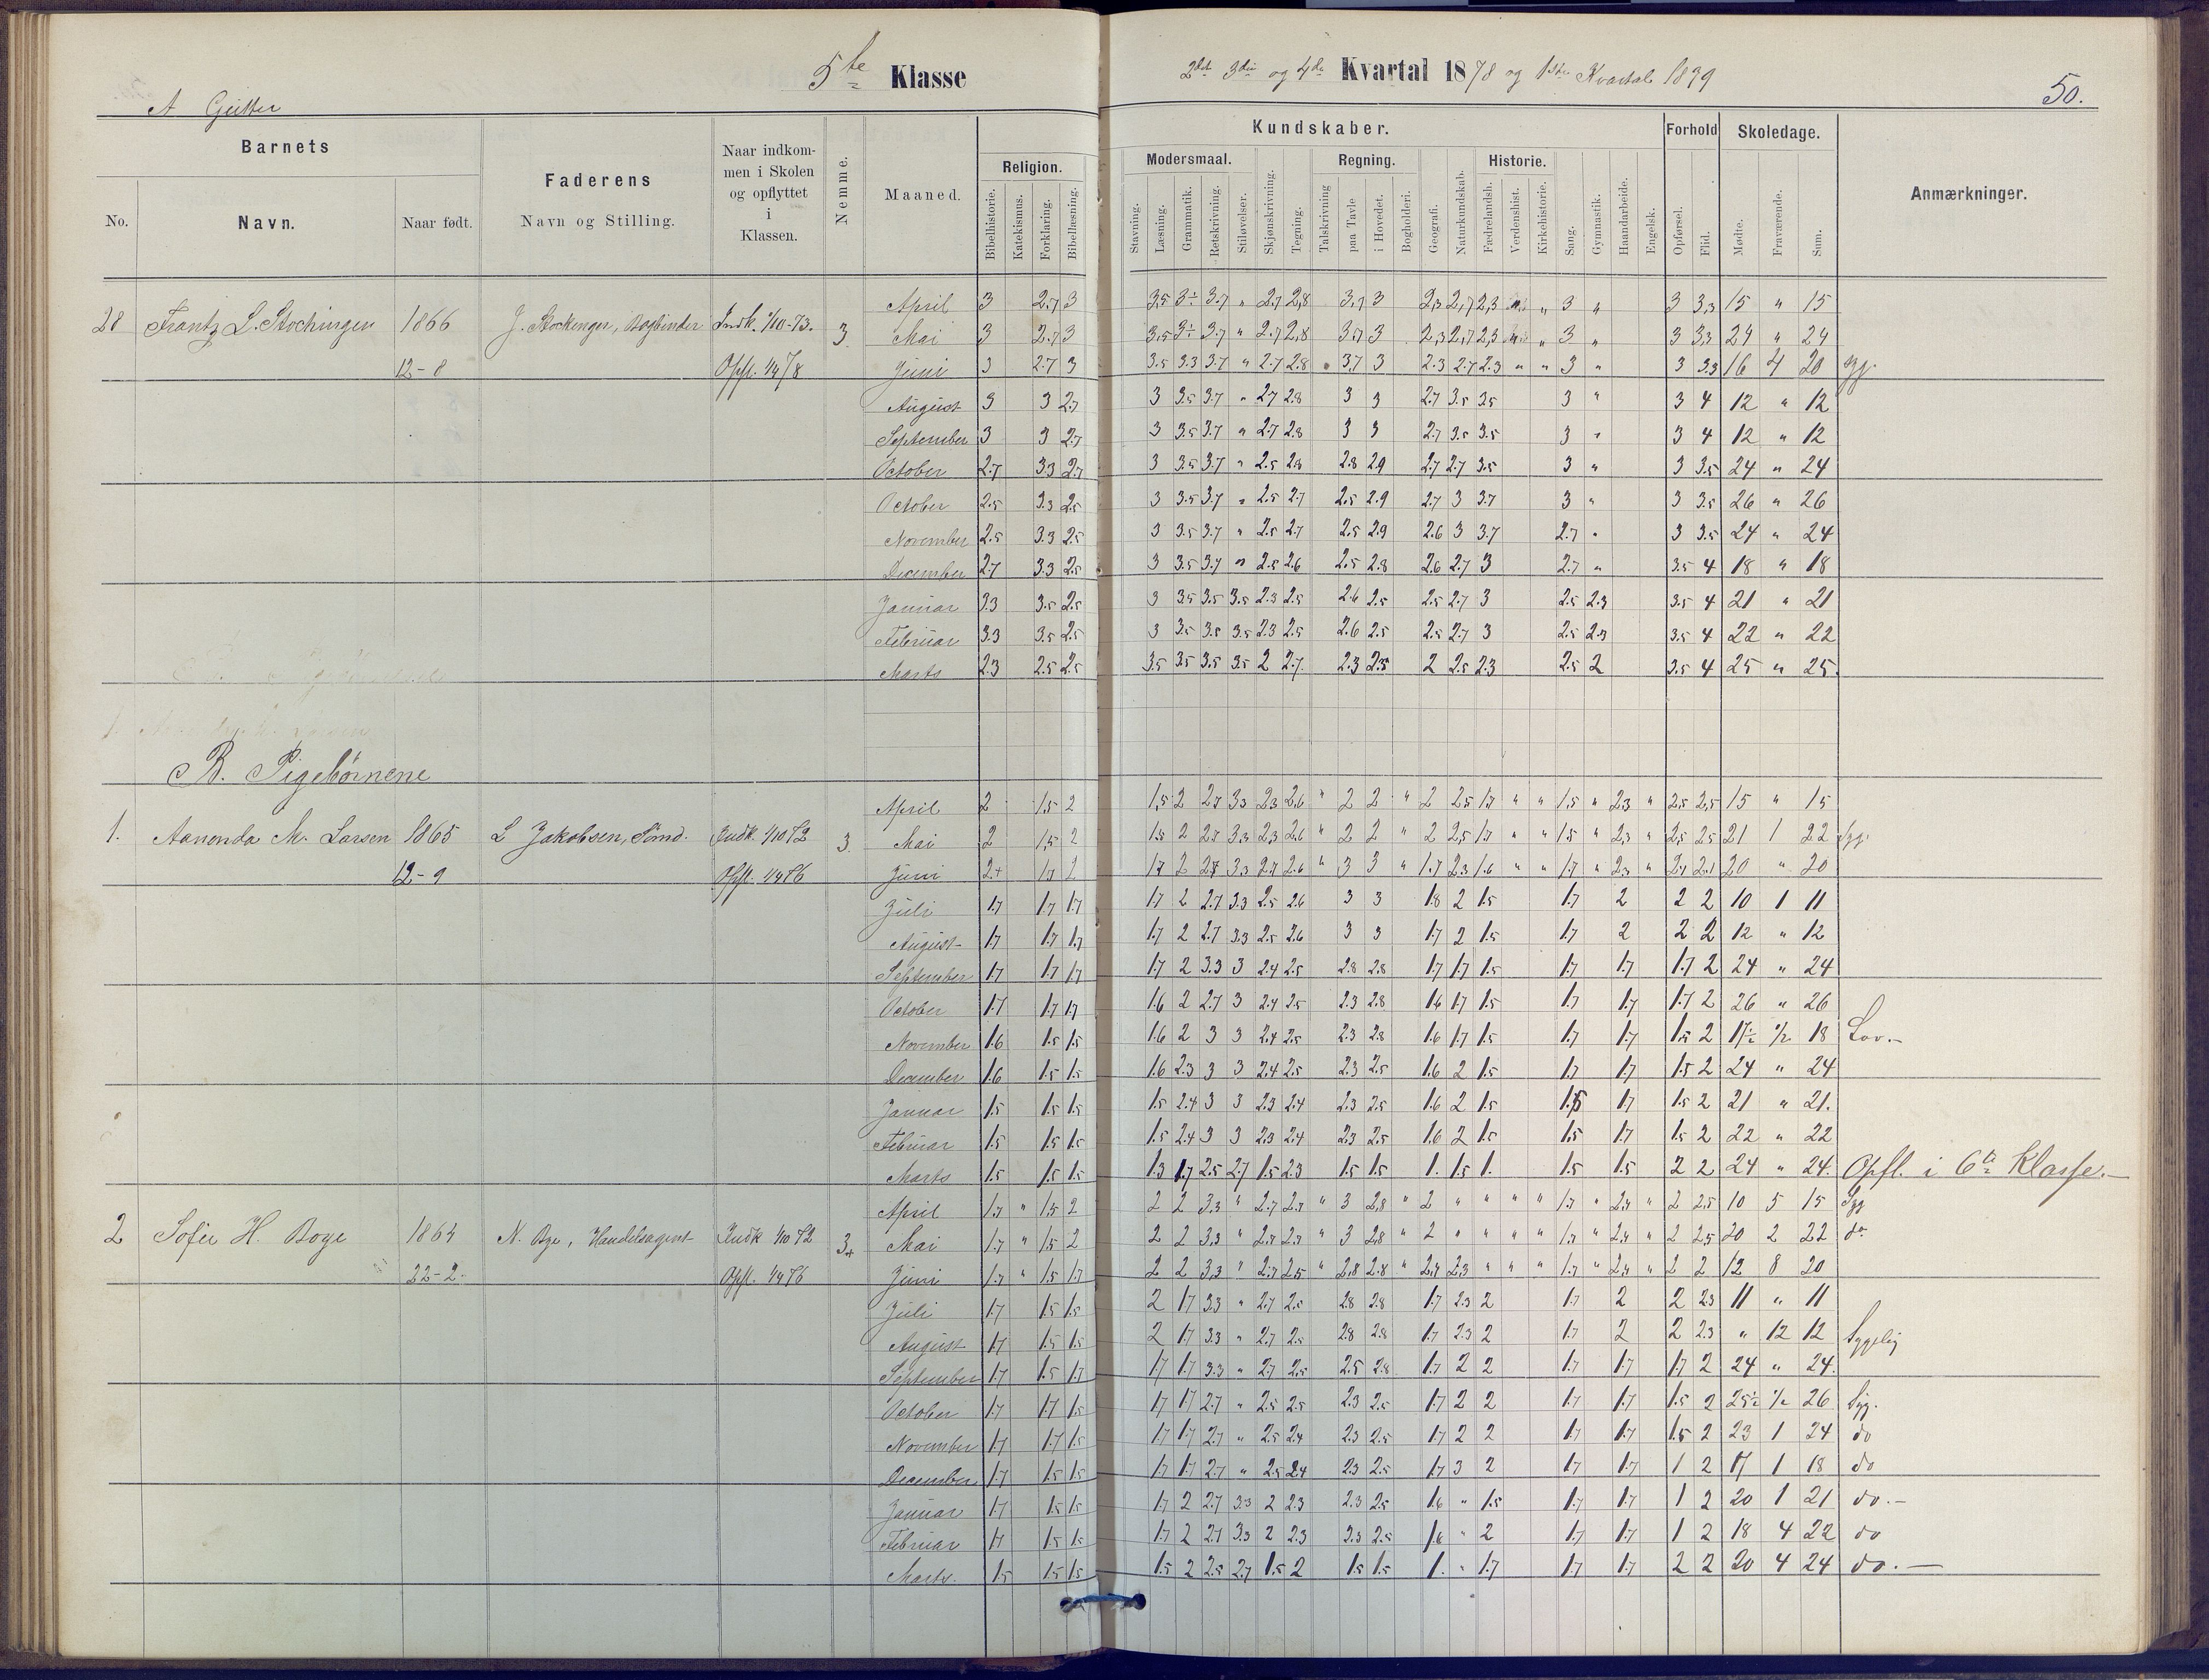 5te Klasse
2det 3die og 4de Kvartal 1878 og 1ste Kvartal 1879
50.
A Gutter
Barnets
Faderens
Naar indkommen i Skolen og opflyttet i Klassen.
Nemme.
Maaned.
Religion.
Kundskaber.
Forhold
Skoledage.
Anmærkninger.
Modersmaal.
Regning.
Historie.
No.
Navn.
Naar født.
Navn og Stilling.
Bibelhistorie.
Katekismus.
Forklaring.
Bibellæsning.
Stavning.
Læsning.
Grammatik.
Retskrivning.
Stiløvelser.
Skjønskrivning.
Tegning.
Talskrivning
paa Tavle
i Hovedet.
Bogholderi.
Geografi.
Naturkundskab.
Fædrelandsh.
Verdenshist.
Kirkehistorie.
Sang.
Gymnastik.
Haandarbeide.
Engelsk.
Opførsel.
Flid.
Mødte.
Fraværende.
Sum.
April 3 2.7 3 3.5 3÷ 3.7 " 2.7 2,8 3,7 3 2,3 2,7 2,3 " 3 " 3 3,3 15 " 15
28 Frantz L. Stochinger 1866 J. Stockinger, Bogbinder Indk. 1/10-73. 3 Mai 3 2.7 3 3,5 3÷ 3.7 " 2.7 2,8 3,7 3 2,3 2,7 2,3 " 3 " 3 3,3 24 " 24
12-8 Opfl. 1/4 78 Juni 3 2.7 3 3.5 3.3 3.7 " 2.7 2.8 " 3,7 3 2.3 2.7 2.3 " " 3 " 3 3.3 16 4 20
August 3 3 2.7 3 3.5 3.7 " 2.7 2.8 3 3 2.7 3.5 3.5 3 " 3 4 12 " 12
September 3 3 2.7 3 3.5 3.7 " 2.7 2.8 3 3 2.7 3.5 3.5 3 " 3 4 12 " 12
October 2.7 3.3 2.7 3 3.5 3.7 " 2.5 2.8 2.8 2.9 2.7 2.7 3.5 3 " 3 3.5 24 " 24
October 2.5 3.3 2.5 3 3.5 3.7 " 2.5 2.7 2.5 2.9 2.7 3 3.7 3 " 3 3.5 26 " 26
November 2.5 3.3 2.5 3 3.5 3.7 " 2.5 2.7 2.5 2.9 2.6 3 3.7 2.7 " 3 3.5 24 " 24
December 2.7 3.3 2.5 3 3.5 3.7 " 2.5 2.6 2.5 2.8 2.6 2.7 3 2.7 " 3.5 4 18 " 18
Januar 3.3 3.5 2.5 3 3.5 3.5 3.5 2.3 2.5 2.6 2.5 2.5 2.7 3 2.5 2.3 3.5 4 21 " 21
Februar 3.3 3.5 2.5 3 3.5 3.5 3.5 2.3 2.5 2.6 2.5 2.5 2.7 3 2.5 2.3 3.5 4 22 " 22
Marts 2.3 2.5 2.5 3.5 3.5 3.5 3.5 2 2.7 2.3 2.5 2 2.5 2.3 2.5 2 3.5 4 25 " 25.
B. Pigebörnene
April 2 1.5 2 1,5 2 2.7 3.3 2.3 2.6 " 2 2 " 2 2.5 1.7 " " 1.5 " 2.3 " 2.5 2,5 15 " 15
1. Aanonda M. Larsen 1865 L Jakobsen, Sömd. Indk. 1/10 72 3. Mai 2 1,5 2 1.5 2 2.7 3.3 2,3 2.6 " 2 2 " 2 2.5 1.7 " " 1.5 " 2.3 " 2,5 2.5 21 1 22 Syg.
12-9 Opfl. 1/4 76 Juni 2+ 1.7 2 1.7 2 2.7 3.3 2.7 2.6 " 3 3 " 1.7 2.3 1.6 " " 1.7 " 2.3 " 2.1 2.1 20 " 20
Juli 1.7 1.7 1.7 1.7 2 2.7 3.3 2.5 2.6 3 3 1.8 2 1.5 1.7 2 2 2 10 1 11
August 1.7 1.7 1.7 1.7 2 2.7 3.3 2.5 2.6 3 3 1.7 2 1.5 1.7 2 2 2 12 " 12
September 1.7 1.7 1.7 1.7 2 3.3 3 2.4 2.5 2.8 2.8 1.7 1.7 1.5 1.7 1.7 1.7 2 24 " 24
October 1.7 1.7 1.7 1.6 2 2.7 3 2.4 2.5 2.3 2.8 1.6 1.7 1.5 1.7 1.7 1.7 2 26 " 26
November 1.6 1.5 1.5 1.6 2 3 3 2.4 2.5 2.3 2.8 1.6 1.7 1.5 1.7 1.7 1.5 2 17½ ½ 18 Lov.-
December 1.6 1.5 1.5 1.6 2.3 3 3 2.4 2.5 2.3 2.5 1.6 2 1.5 1.7 1.7 1.5 2 24 " 24
Januar 1.5 1.5 1.5 1.5 2.4 3 3 2.3 2.4 2.3 2.5 1.6 2 1.5 1.5 1.7 1.5 2 21 " 21.
Februar 1.5 1.5 1.5 1.5 2.4 3 3 2.3 2.4 2.3 2.5 1.6 2 1.5 1.5 1.7 1.5 2 22 " 22
Marts 1.5 1.5 1.5 1.3 1.7 2.5 2.7 1.5 2.3 1.5 1.5 1. 1.5 1. 1.5 1.5 2 2 24 " 24. Opfl. i 6te Klasse.-
April 1.7 " 1.5 2 2 2 3,3 " 2.7 2.7 " 3 2,8 " 2 " " " " 1.7 " 2.4 " 2 2.5 10 5 15 Syg
2 Sofie H. Boye N. Bye, Handelsagent Indk 1/10 72 3+ Mai 1.7 " 1.5 2 2 2 3.3 " 2.7 2.7 " 3 2,8 " 2 " " " " 1.7 " 2.4 " 2 2.5 20 2 22 do
22-2- Opfl. 1/4 76 Juni 1.7 " 1.5 1.7 2 2 3,3 " 2.7 2.5 " 2,8 2.8 " 2,4 2,3 " " " 1.7 " 2.4 " 2 2 12 8 20
Juli 1.7 1.5 1.5 2 1.7 3.3 " 2.7 2.5 2.8 2.8 1.7 2.3 2 1.7 2 2 2.3 11 " 11
August 1.7 1.5 1.5 2 1.7 3.3 " 2.7 2.5 2.8 2.8 1.7 2.3 2 1.7 2 2 2.3 " 12 12 Sygelig
September 1.7 1.5 1.7 1.7 1.7 3.3 " 2.7 2.5 2.5 2.8 1.7 2 2 1.7 1.7 1.7 2 24 " 24.
October 1.7 1.7 1.5 1.7 1.7 2.7 " 2.5 2.5 2.3 2.5 1.7 2 2 1.7 1.7 1.5 2 25½ ½ 26 Syg.
November 1.7 1.7 1.5 1.7 1.7 2.7 " 2.5 2.4 2.3 2.5 1.7 2 2 1.7 1.7 1.5 2 23 1 24 do
December 1.7 1.5 1.5 1.7 1.7 2.7 " 2.5 2.4 2.3 2.5 1.7 3 2 1.7 1.7 1 2 17 1 18 do
Januar 1.7 1.5 1.5 1.7 2 2.7 3.3 2 2.3 2.3 2.5 1.6 " 1.5 1.7 1.7 1 2 20 1 21 do.-
Februar 1.7 1.5 1.5 1.7 2 2.7 3.3 2 2.3 2.3 2.5 1.6 " 2 1.7 1.7 1 2 18 4 22 do
Marts. 1.5 1.5 1.5 1.5 2 2.5 2.7 1.5 2 1.5 1.5 1. " 1.7 1.7 1.7 2 2 20 4 24 do.-